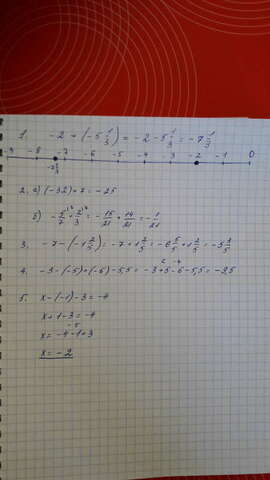 1. -2 + (-5 1/3) = -2 - 5 1/3 = -7 1/3
-9 -8 -7 -6 -5 -4 -3 -2 -1 0
-7 1/3
2. а) (-32) + 7 = -25
б) - 5/7 + 2/3 = - 15/21 + 14/21 = - 1/21
3. -7 - (-1 2/5) = -7 + 1 2/5 = -6 5/5 + 1 2/5 = -5 3/5
4. -3 - (-5) + (-6) - 5,5 = -3 + 5 - 6 - 5,5 =
5. x - (-1) - 3 = -4
x + 1 - 3 = -4
-5
x = -4 - 1 + 3
x = -2